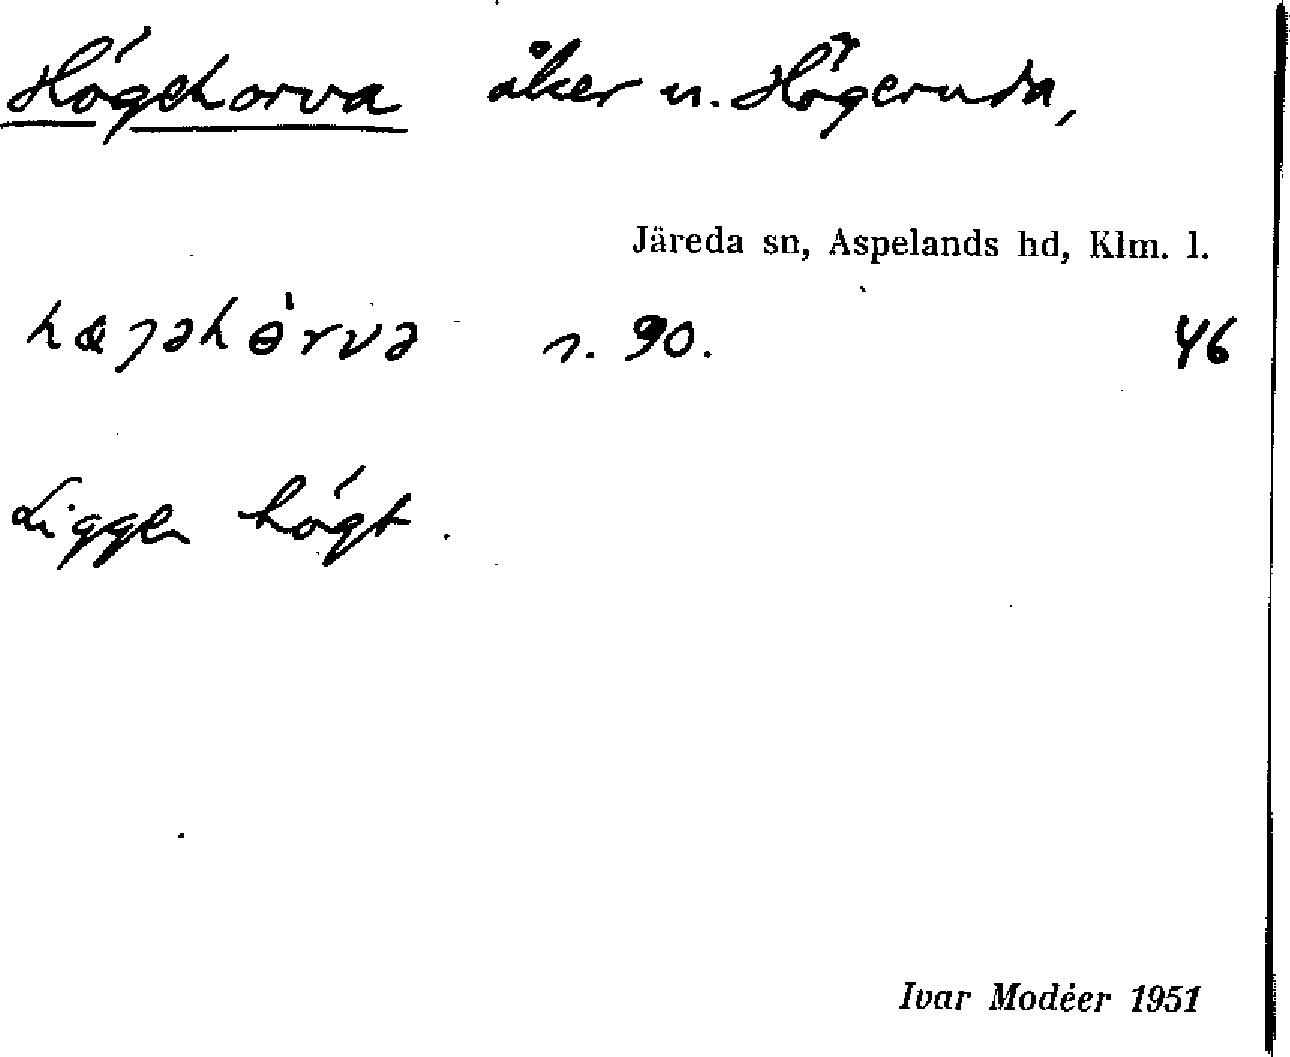 Högehorva åker u. Högeruda,
Järeda sn, Aspelands hd, Klm. l.
r. 90. 46
Ligger högt.
Ivar Modéer 1951